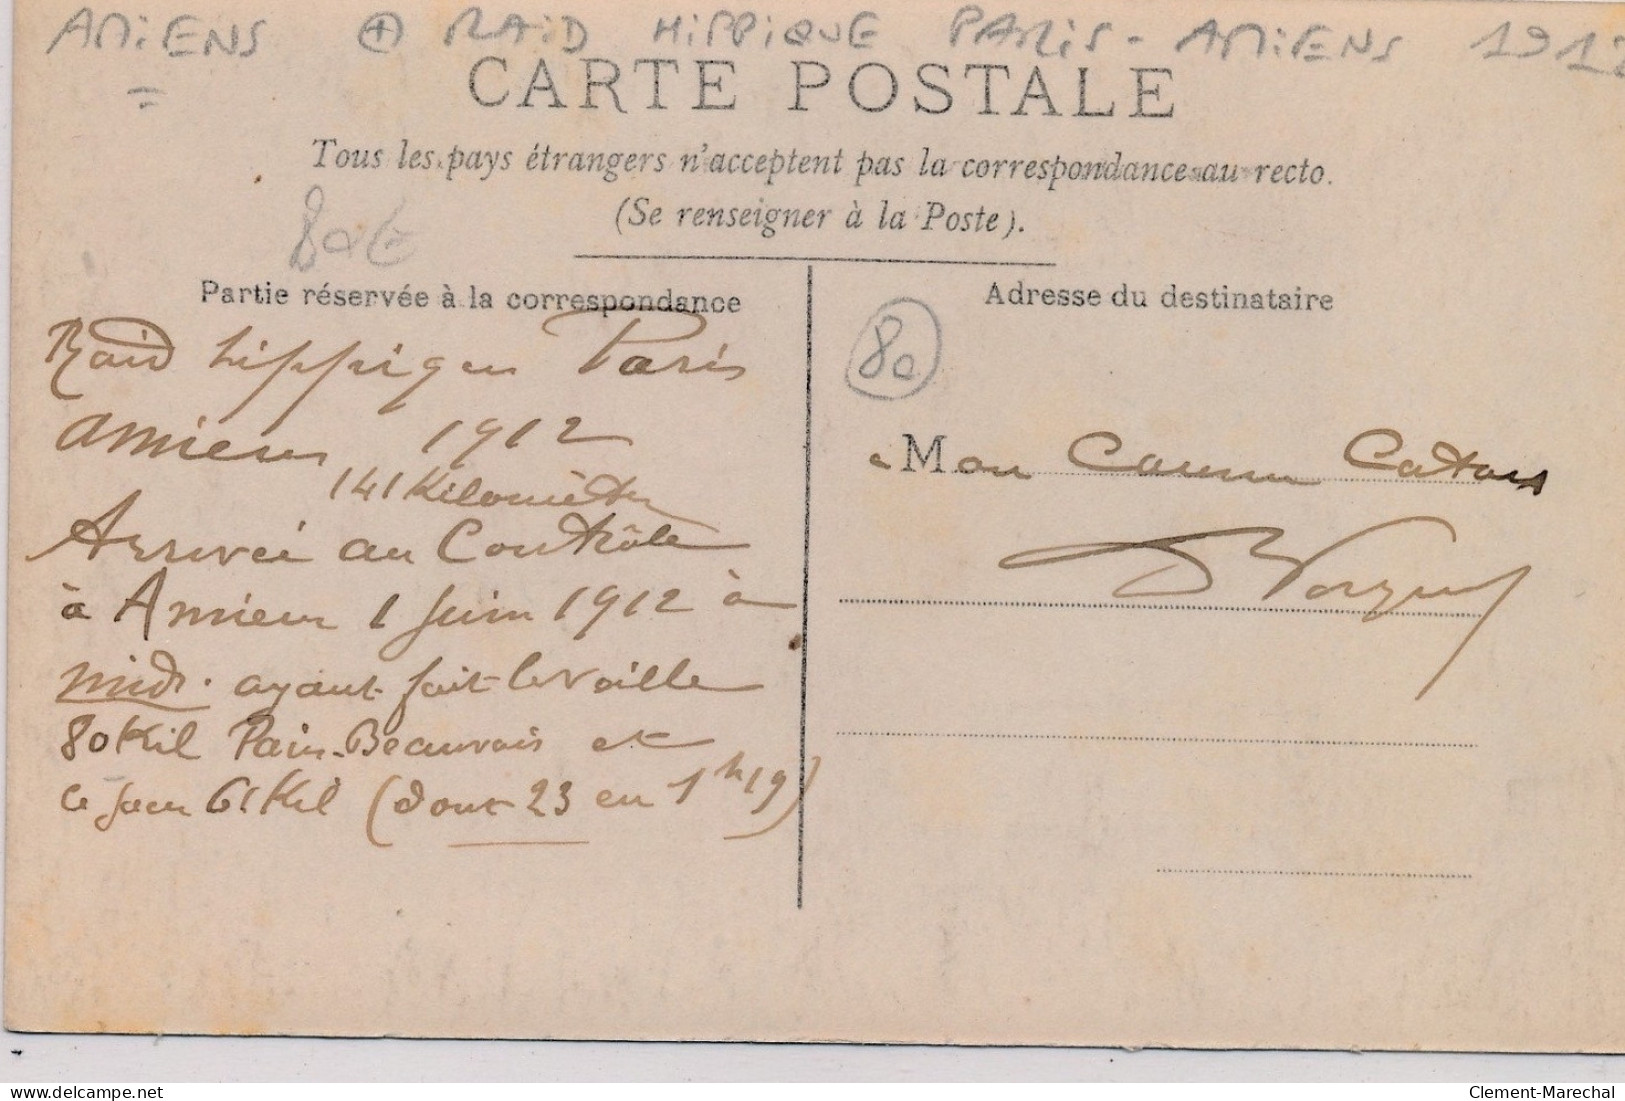 AMIENS + RAID HIPPIQUE PARIS - AMIENS 191
CARTE POSTALE
Tous les pays étrangers n'acceptent pas la correspondance au recto.
(Se renseigner à la Poste).
80€
Partie réservée à la correspondance
Raid hippique Paris
Amiens 1912
141 Kilomètres
Arrivée au Contrôle
à Amiens 1 Juin 1912 à
midi. ayant fait la veille
80 Kil Paris-Beauvais et
ce jour 61 Kil (dont 23 en 1h19)
Adresse du destinataire
80
à Mon
delcampe.net
Clement-Marechal